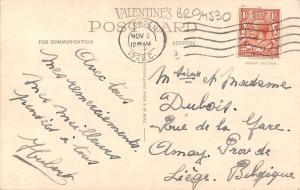 VALENTINE'S
POSTCARD
BR94530
FOR COMMUNICATION
ADDRESS
NOV 2
12 15 AM
1928
GREAT BRITAIN.
Avec tous
mes remerciements
mes meilleures
pensées à tous
Hubert
Messieurs et Madame
Dubois.
Rue de la Gare.
Amay. Prov de
Liège. Belgique